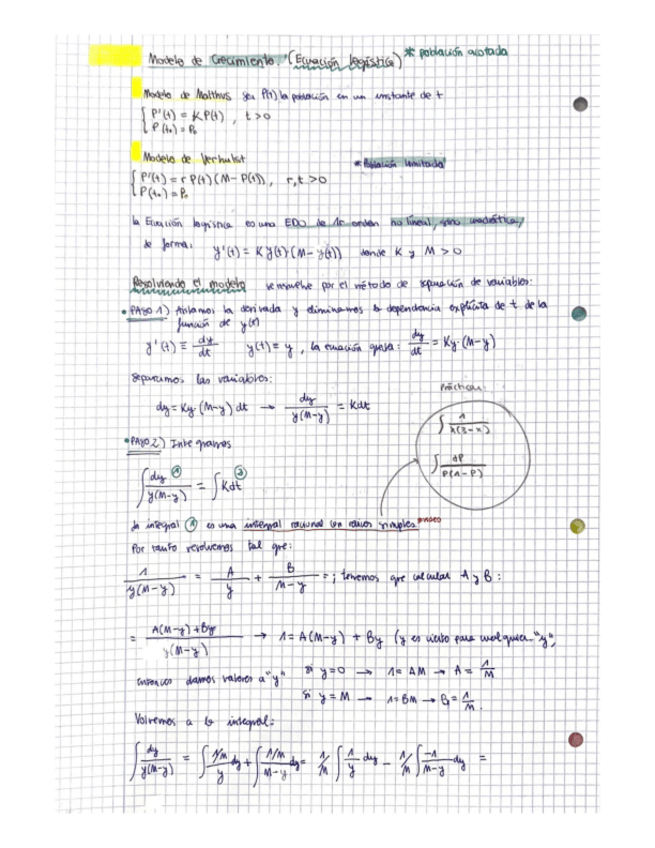 Modelo de Crecimiento. (Ecuación logística) * población acotada
Modelo de Malthus sea P(t) la población en un instante de t
{ P'(t) = K P(t) , t > 0
P(t₀) = P₀
Modelo de Verhulst * Población limitada
{ P'(t) = r P(t) (M - P(t)), r, t > 0
P(t₀) = P₀
la Ecuación logística es una EDO de 1er orden no lineal, sino cuadrática,
de forma: y'(t) = K y(t) · (M - y(t)) donde K y M > 0
Resolviendo el modelo se resuelve por el método de separación de variables:
• PASO 1) Aislamos la derivada y eliminamos la dependencia explícita de t de la
función de y(t)
y'(t) ≡ dy/dt y(t) = y , la ecuación queda: dy/dt = Ky · (M - y)
Separamos las variables:
Prácticas:
dy = Ky · (M - y) dt → dy/(y(M - y)) = K dt
∫ 1/(x(3 - x))
• PASO 2) Integramos
∫ dP/(P(1 - P))
∫ dy/(y(M - y)) ① = ∫ K dt ②
La integral ① es una integral racional con raíces simples *
Por tanto resolvemos tal que:
1/(y(M - y)) = A/y + B/(M - y) = ; tenemos que calcular A y B:
= (A(M - y) + By)/(y(M - y)) → 1 = A(M - y) + By (y es cierto para cualquier "y",
entonces damos valores a "y" si y = 0 → 1 = AM → A = 1/M
si y = M → 1 = BM → B = 1/M .
Volvemos a la integral:
∫ dy/(y(M - y)) = ∫ (1/M)/y dy + ∫ (1/M)/(M - y) dy = 1/M ∫ 1/y dy - 1/M ∫ -1/(M - y) dy =